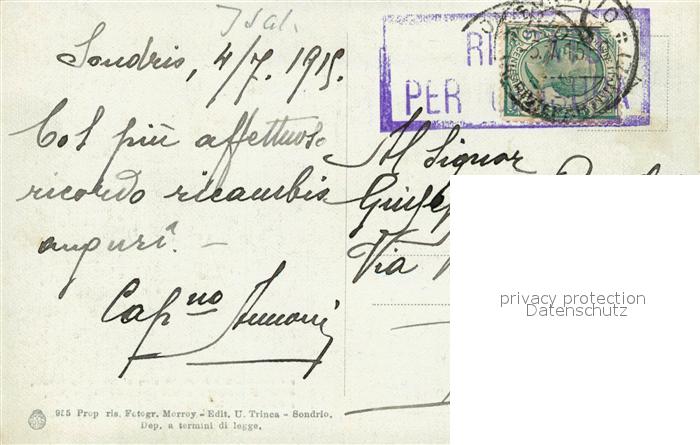 Ital.
Sondrio, 4/7. 1915.
Col più affettuoso
ricordo ricambio
auguri. —
Cap.no
Al Signor
Via
PER
privacy protection
Datenschutz
955 Prop ris. Fotogr. Morroy - Edit. U. Trinca - Sondrio.
Dep. a termini di legge.